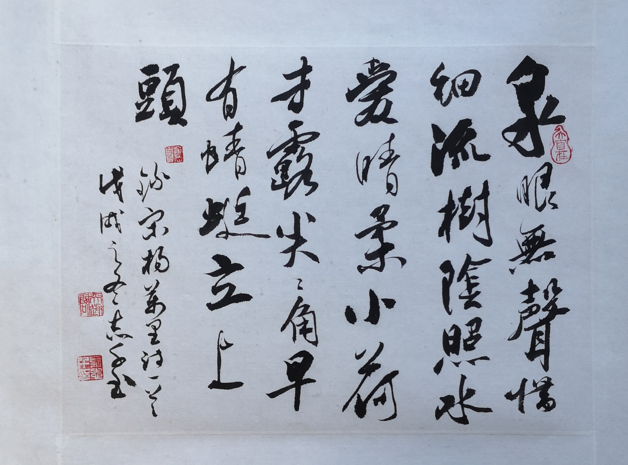 泉眼無聲惜
細流樹陰照水
爱晴柔小荷
才露尖〻角早
有蜻蜓立上
頭
錄宋楊萬里诗一首
戊戌之冬志平书